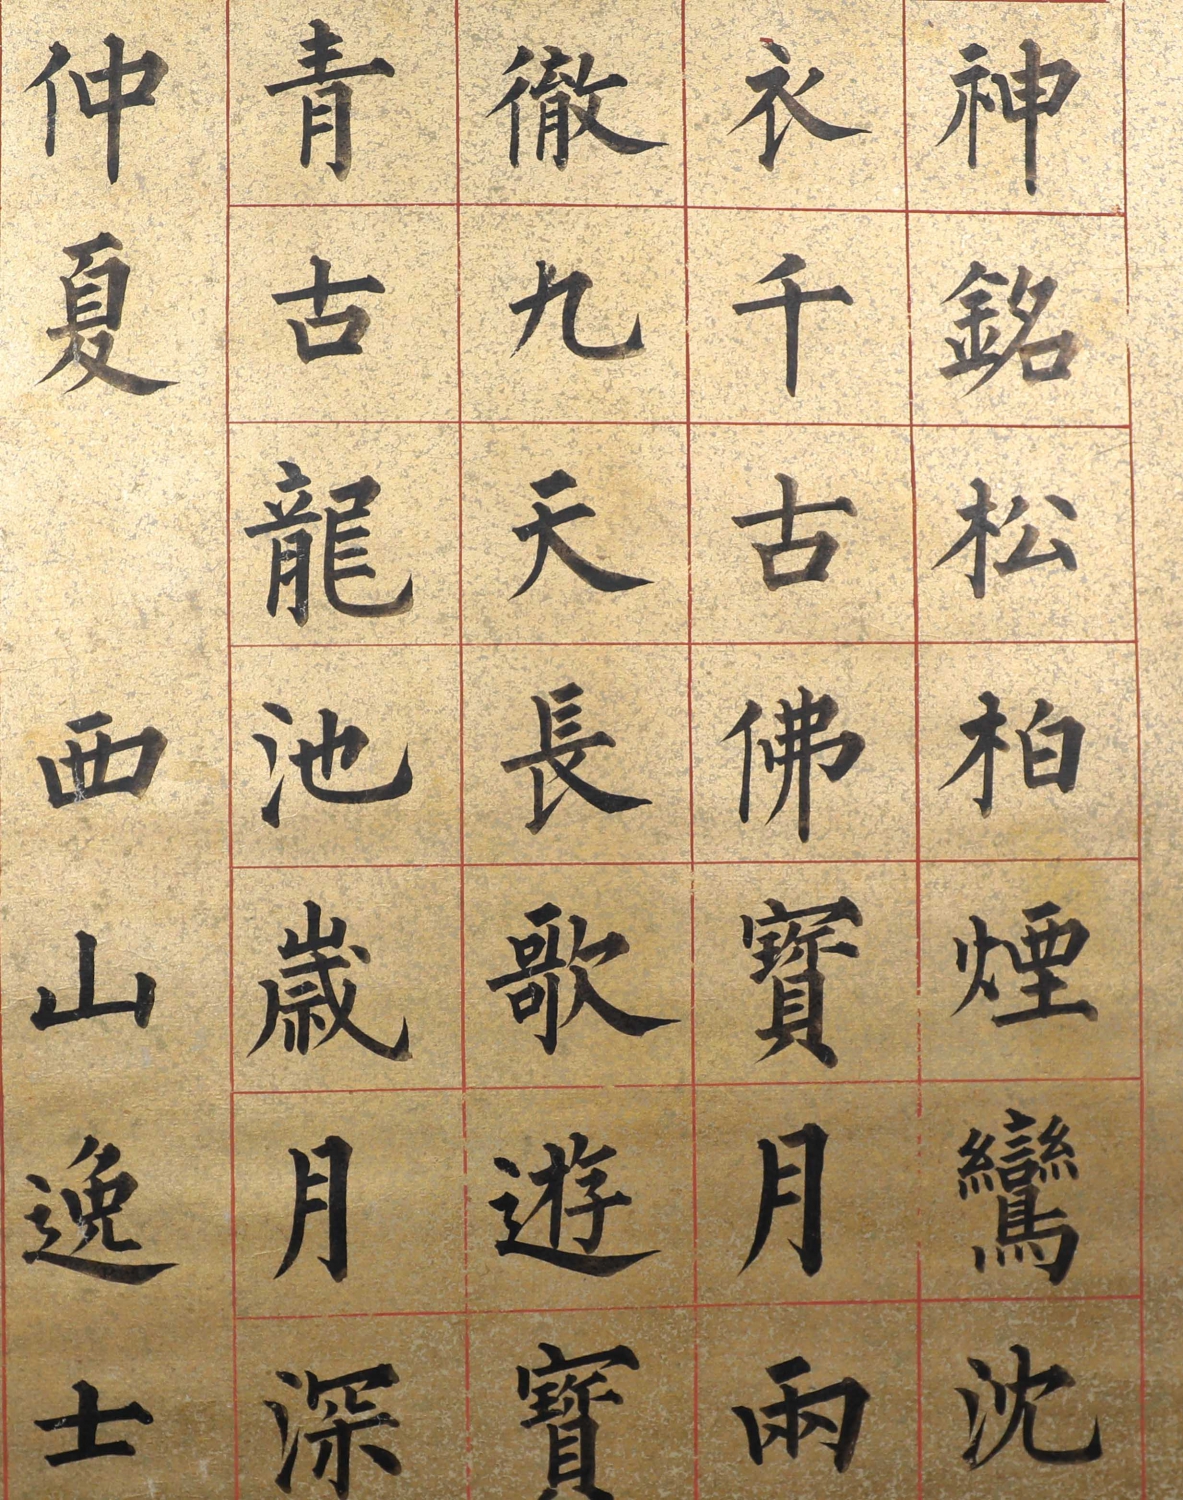 神銘松柏煙鸞沈
衣千古佛寶月兩
徹九天長歌遊寶
青古龍池歳月深
仲夏 西山逸士